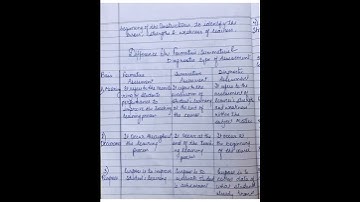 beginning of the Instructions to identify the
strengths & weakness of learners.
Difference b/w Formative, Summative &
Diagnostic type of Assessment
Basis
Formative Assessment
Summative Assessment
Diagnostic Assessment
1) Meaning
It refer to the
of students
performance to
improve the
learning process
It refers to the
evaluation of
student learning
at the end of
the course.
It refer to the
assessment of
learner's strength
and weakness
within the
subject matter
2)
It occurs throughout
the learning
process
It occurs at the
end of the
learning
process
It occurs at
the beginning
of the course
3) Purpose
Purpose is to improve
student learning
Purpose is to
student
achievement
Purpose is to
collect data of
what student
already know